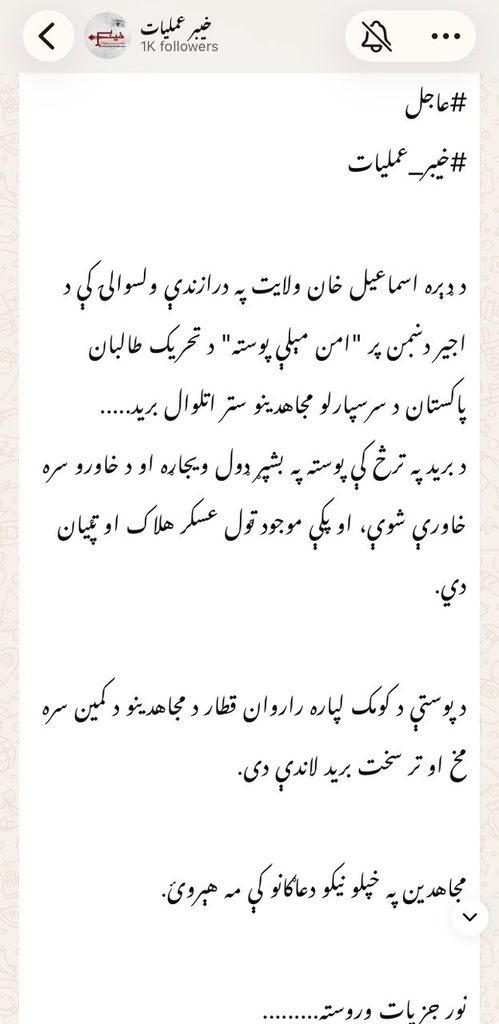 خیبر عملیات
1K followers
#عاجل
#خیبر_عملیات
د ډېره اسماعیل خان ولایت په درازندې ولسوالۍ کې د
اجیر دښمن پر "امن مېلې پوسته" د تحریک طالبان
پاکستان د سرسپارلو مجاهدینو ستر اتلوال برید.....
د برید په ترڅ کې پوسته په بشپړ ډول ویجاړه او د خاورو سره
خاورې شوې، او پکې موجود ټول عسکر هلاک او ټپیان
دي.
د پوستې د کومک لپاره راروان قطار د مجاهدینو د کمین سره
مخ او تر سخت برید لاندې دی.
مجاهدین په خپلو نیکو دعاګانو کې مه هېروئ.
نور جزیات وروسته.........